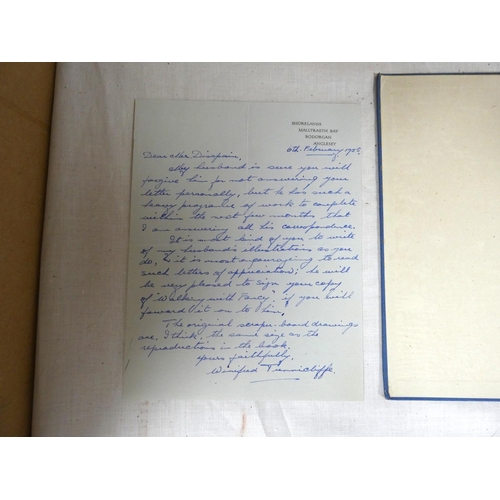 SHORELANDS
MALLTRAETH BAY
BODORGAN
ANGLESEY
6th February 1955
Dear Mr.
My husband is sure you will
forgive him for not answering your
letter personally, but he has such a
heavy programe of work to complete
within the next few months, that
I am answering all his correspondence.
It is most kind of you to write
of my husband's illustrations as you
do, & it is most encouraging to read
such letters of appreciation; he will
be very pleased to sign your copy
of "Walking with Fancy", if you will
forward it on to him.
The original scraper-board drawings
are, I think, the same size as the
reproductions in the book.
Yours faithfully,
Winifred Tunnicliffe.